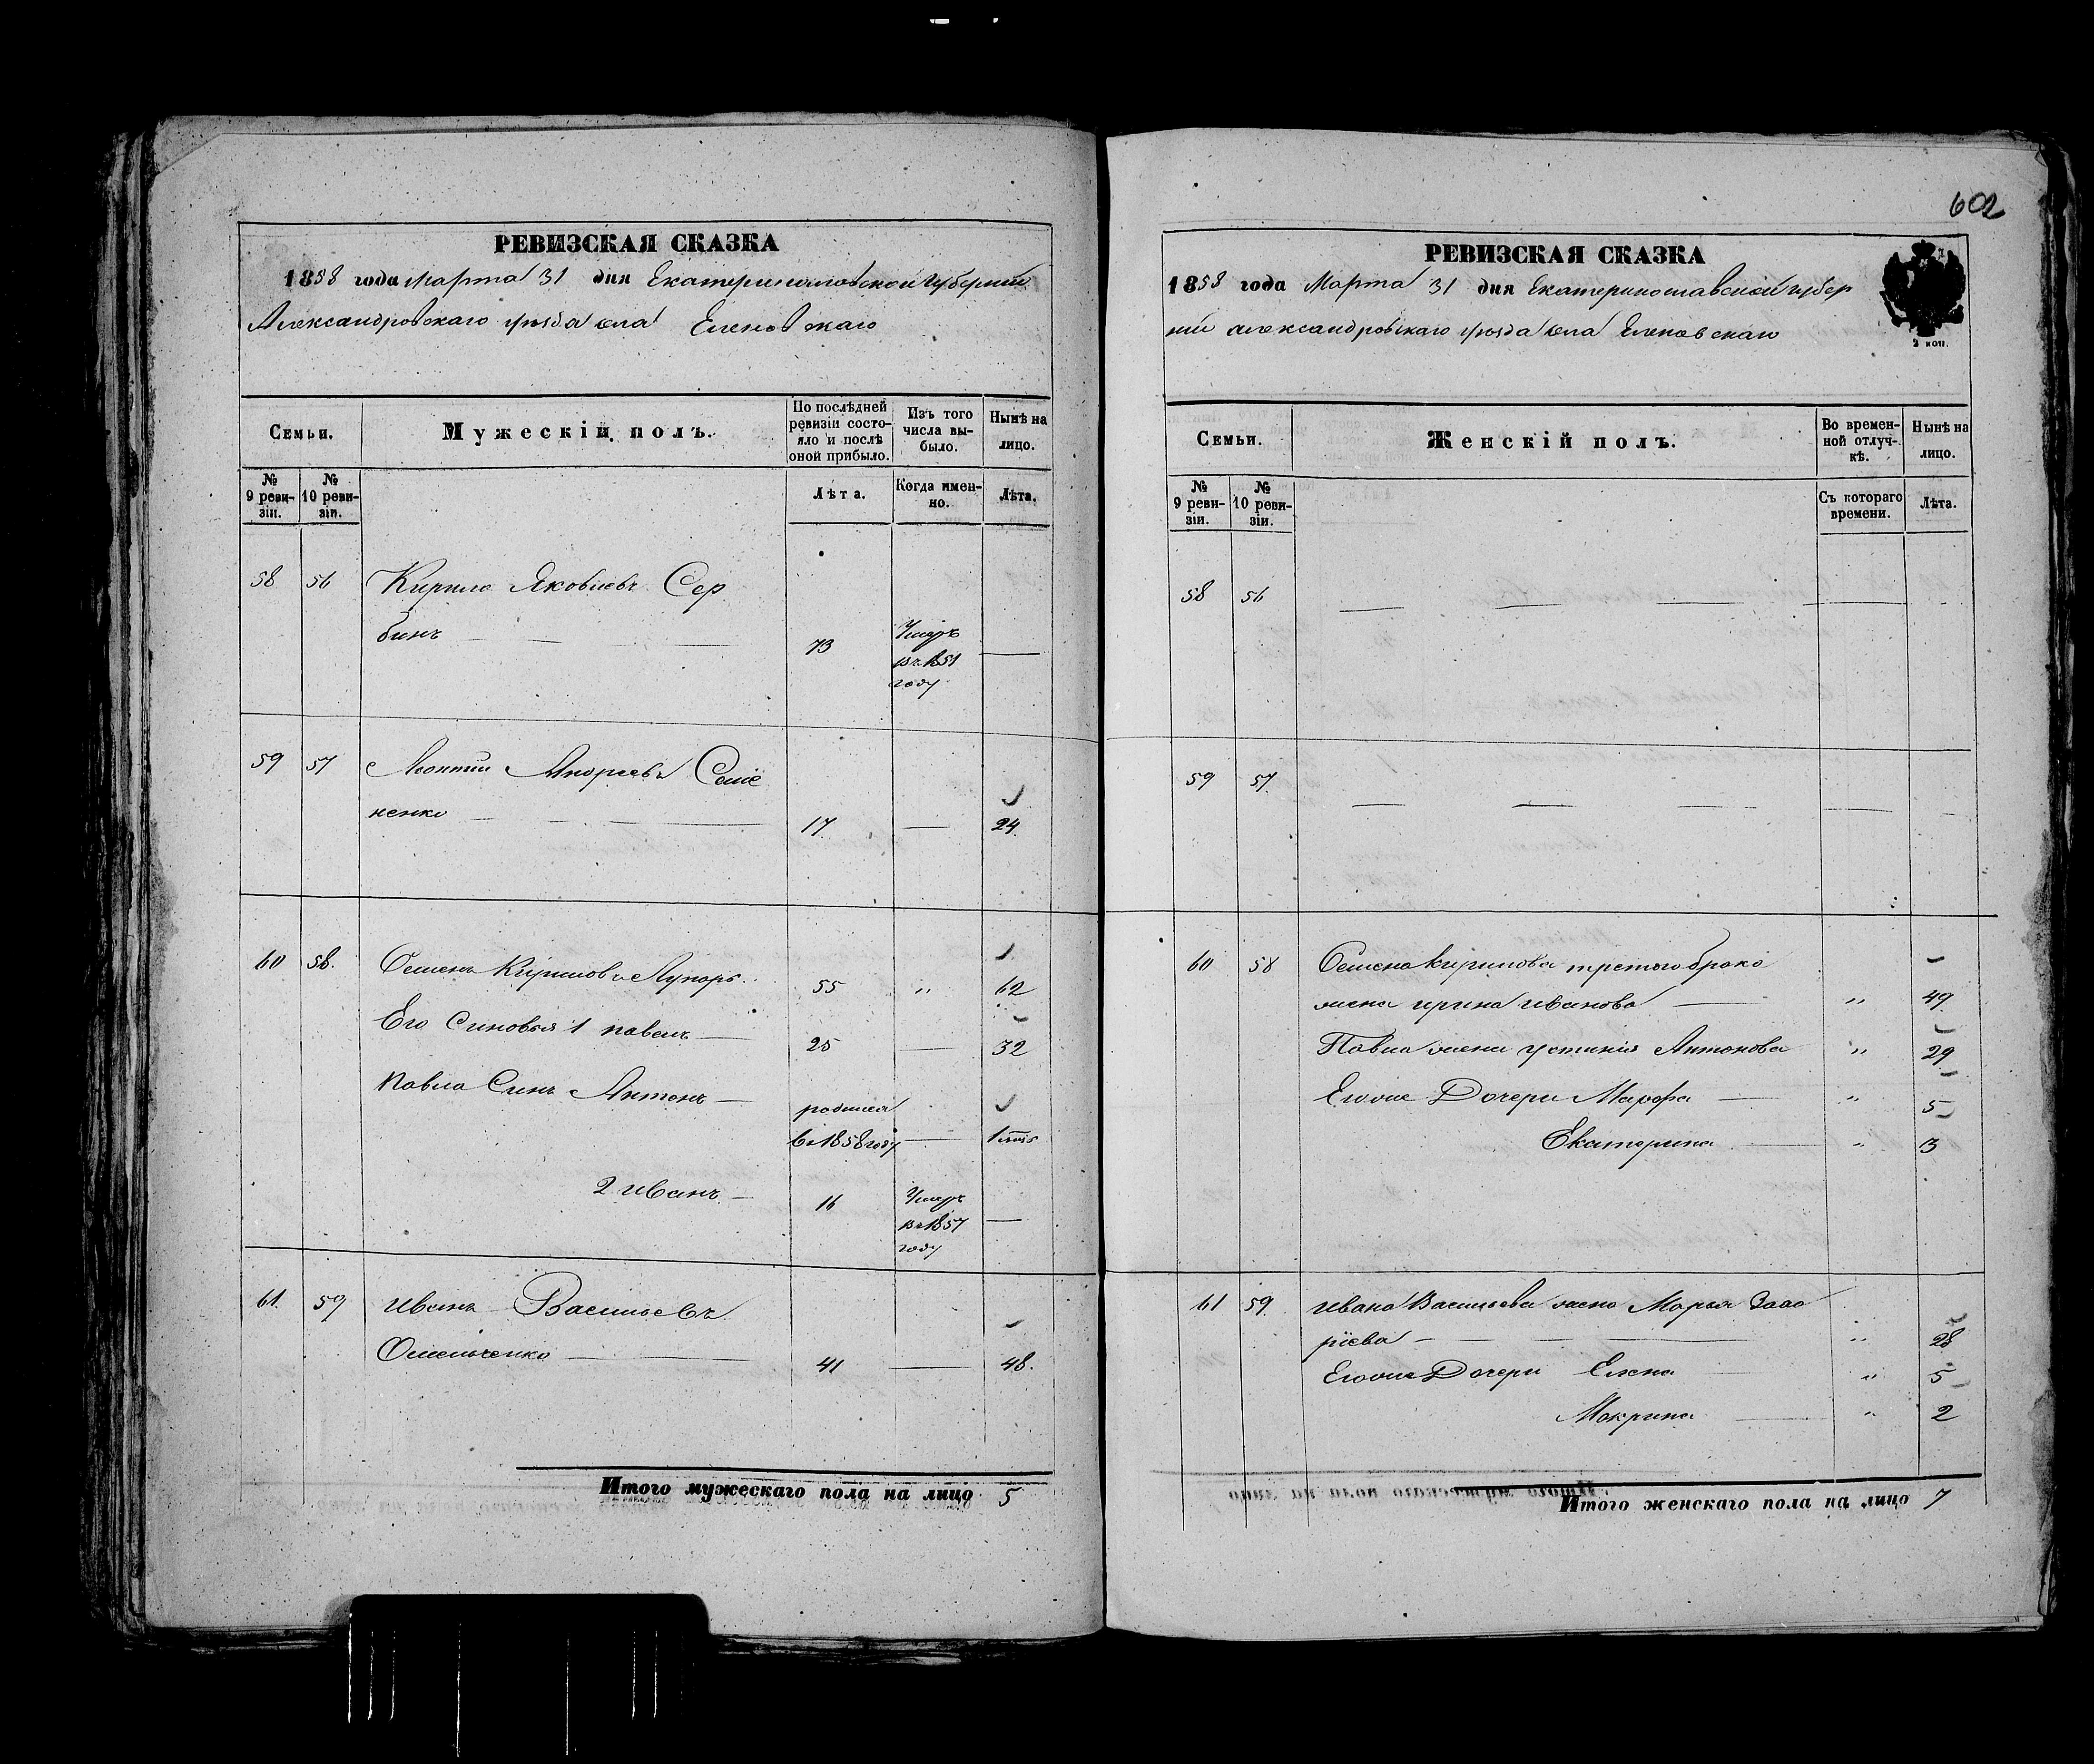 602
РЕВИЗСКАЯ СКАЗКА
1858 года Марта 31 дня Екатеринославской Губернии
Александровскаго уѣзда села Еленовскаго
Семьи.
Мужескій полъ.
По послѣдней ревизіи состояло и послѣ оной прибыло.
Изъ того числа выбыло.
Ныне на лицо.
№ 9 ревизіи.
№ 10 ревизіи.
Лѣта.
Когда именно.
Лѣта.
58 56 Кирило Яковлевъ Сер
бинъ 73 Умеръ
въ 1851
году
59 57 Леонтій Андреевъ Семе
ненко 17 24.
60 58. Семенъ Кириловъ Лупоръ 55 " 62
Его Синовья 1 павелъ 25 32
Павла Синъ Антонъ родился
въ 1858 году 1
2 иванъ 16 Умеръ
въ 1857
году
61. 59 иванъ Васильевъ
Омельченко 41 48.
Итого мужескаго пола на лицо 5
РЕВИЗСКАЯ СКАЗКА
1858 года Марта 31 дня Екатеринославской губер
ніи александровскаго уѣзда села Еленовскаго
3 коп.
Семьи.
Женскій полъ.
Во временной отлучкѣ.
Нынѣ на лицо.
№ 9 ревизіи.
№ 10 ревизіи.
Съ котораго времени.
Лѣта.
58 56
59 57.
60 58 Семена кирилова третого брака
жена ирина иванова " 49.
Павла жена устинія Антонова " 29
Еговые Дочери Марфа " 5
Екатерина " 3
61 59. ивана Васильева жена Марья Заха
ріева " 28
Еговые Дочери Елена " 5
Мокрина " 2
Итого женскаго пола на лицо 7